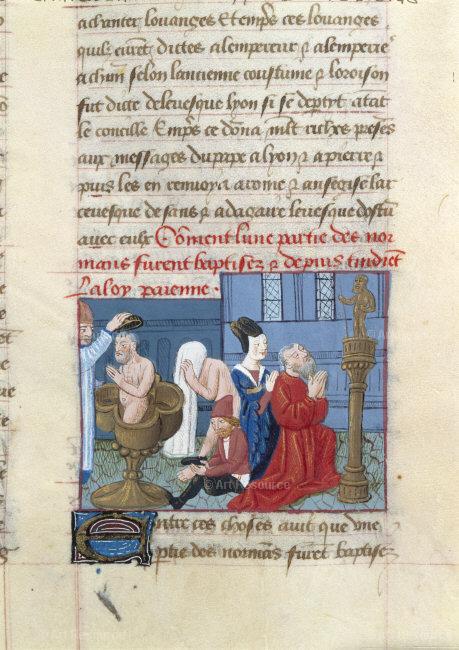 achanter louanges Et emps ces louanges
quilz eurent dictes alempereur ⁊ alemperie
achun selon lancienne coustume ⁊ loroison
fut dicte deleuesque lyon si se deptyt atat
le concille Emps ce dona mlt riches preses
aux messages du pape alyon ⁊ apierre ⁊
puis les en renuoya arome ⁊ ansegise lar
ceuesque de sans ⁊ adagaire leuesque
auec eulx Coment lune partie des nor
mans furent baptisez ⁊ depuis tindret
la loy paienne .
Entre ces choses auit que vne
ptie des normas furet baptisez
© Art Resource